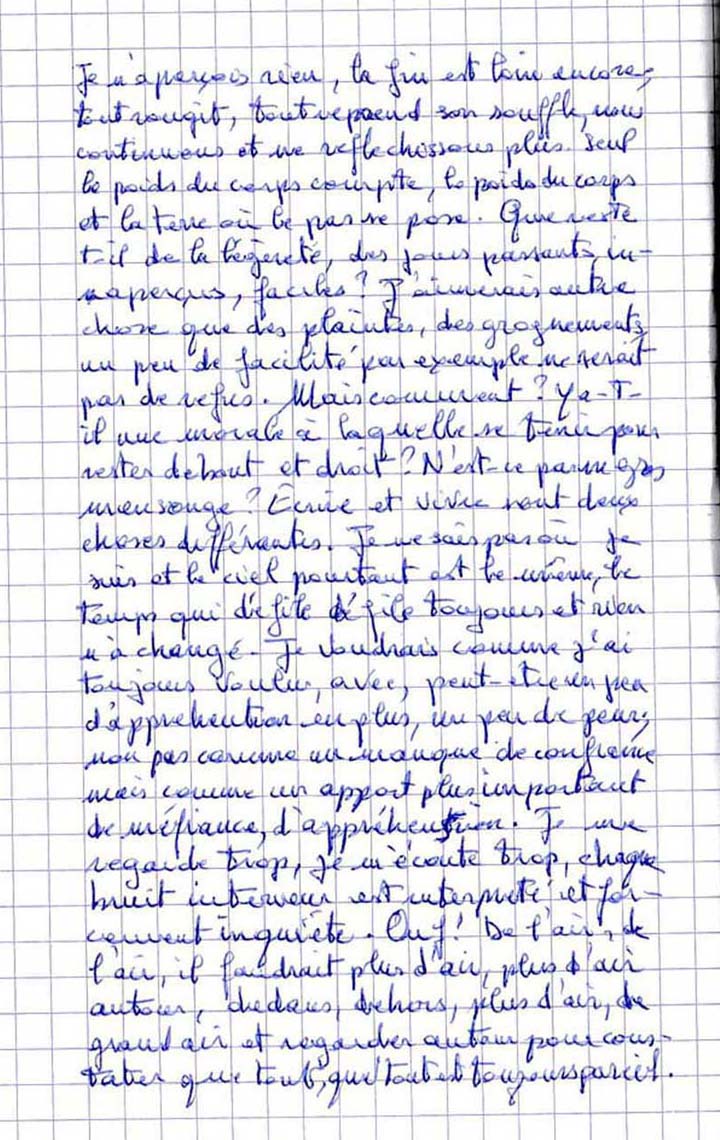 Je n'aperçois rien, la fin est loin encore,
tout rougit, tout reprend son souffle, nous
continuons et ne reflechissons plus. Seul
le poids du corps compte, le poids du corps
et la terre où le pas se pose. Que reste
t-il de la légèreté, des jours passants, in-
naperçus, faciles ? J'aimerais autre
chose que des plaintes, des grognements,
un peu de facilité par exemple ne serait
pas de refus. Mais comment ? Y a-t-
il une morale à laquelle se tenir pour
rester debout et droit ? N'est-ce pas un gros
mensonge ? Ecrire et vivre sont deux
choses différentes. Je ne sais pas où je
suis et le ciel pourtant est le même, le
temps qui défile défile toujours et rien
n'a changé. Je voudrais comme j'ai
toujours voulu, avec, peut-etre un peu
d'appréhention en plus, un peu de peur,
non pas comme un manque de confiance
mais comme un apport plus important
de méfiance, d'appréhension. Je me
regarde trop, je m'écoute trop, chaque
bruit interieur est interprété et for-
cement inquiète. Ouf ! De l'air, de
l'air, il faudrait plus d'air, plus d'air
autour, dedans, dehors, plus d'air, de
grand air et regarder autour pour cons-
tater que tout, que tout est toujours pareil.